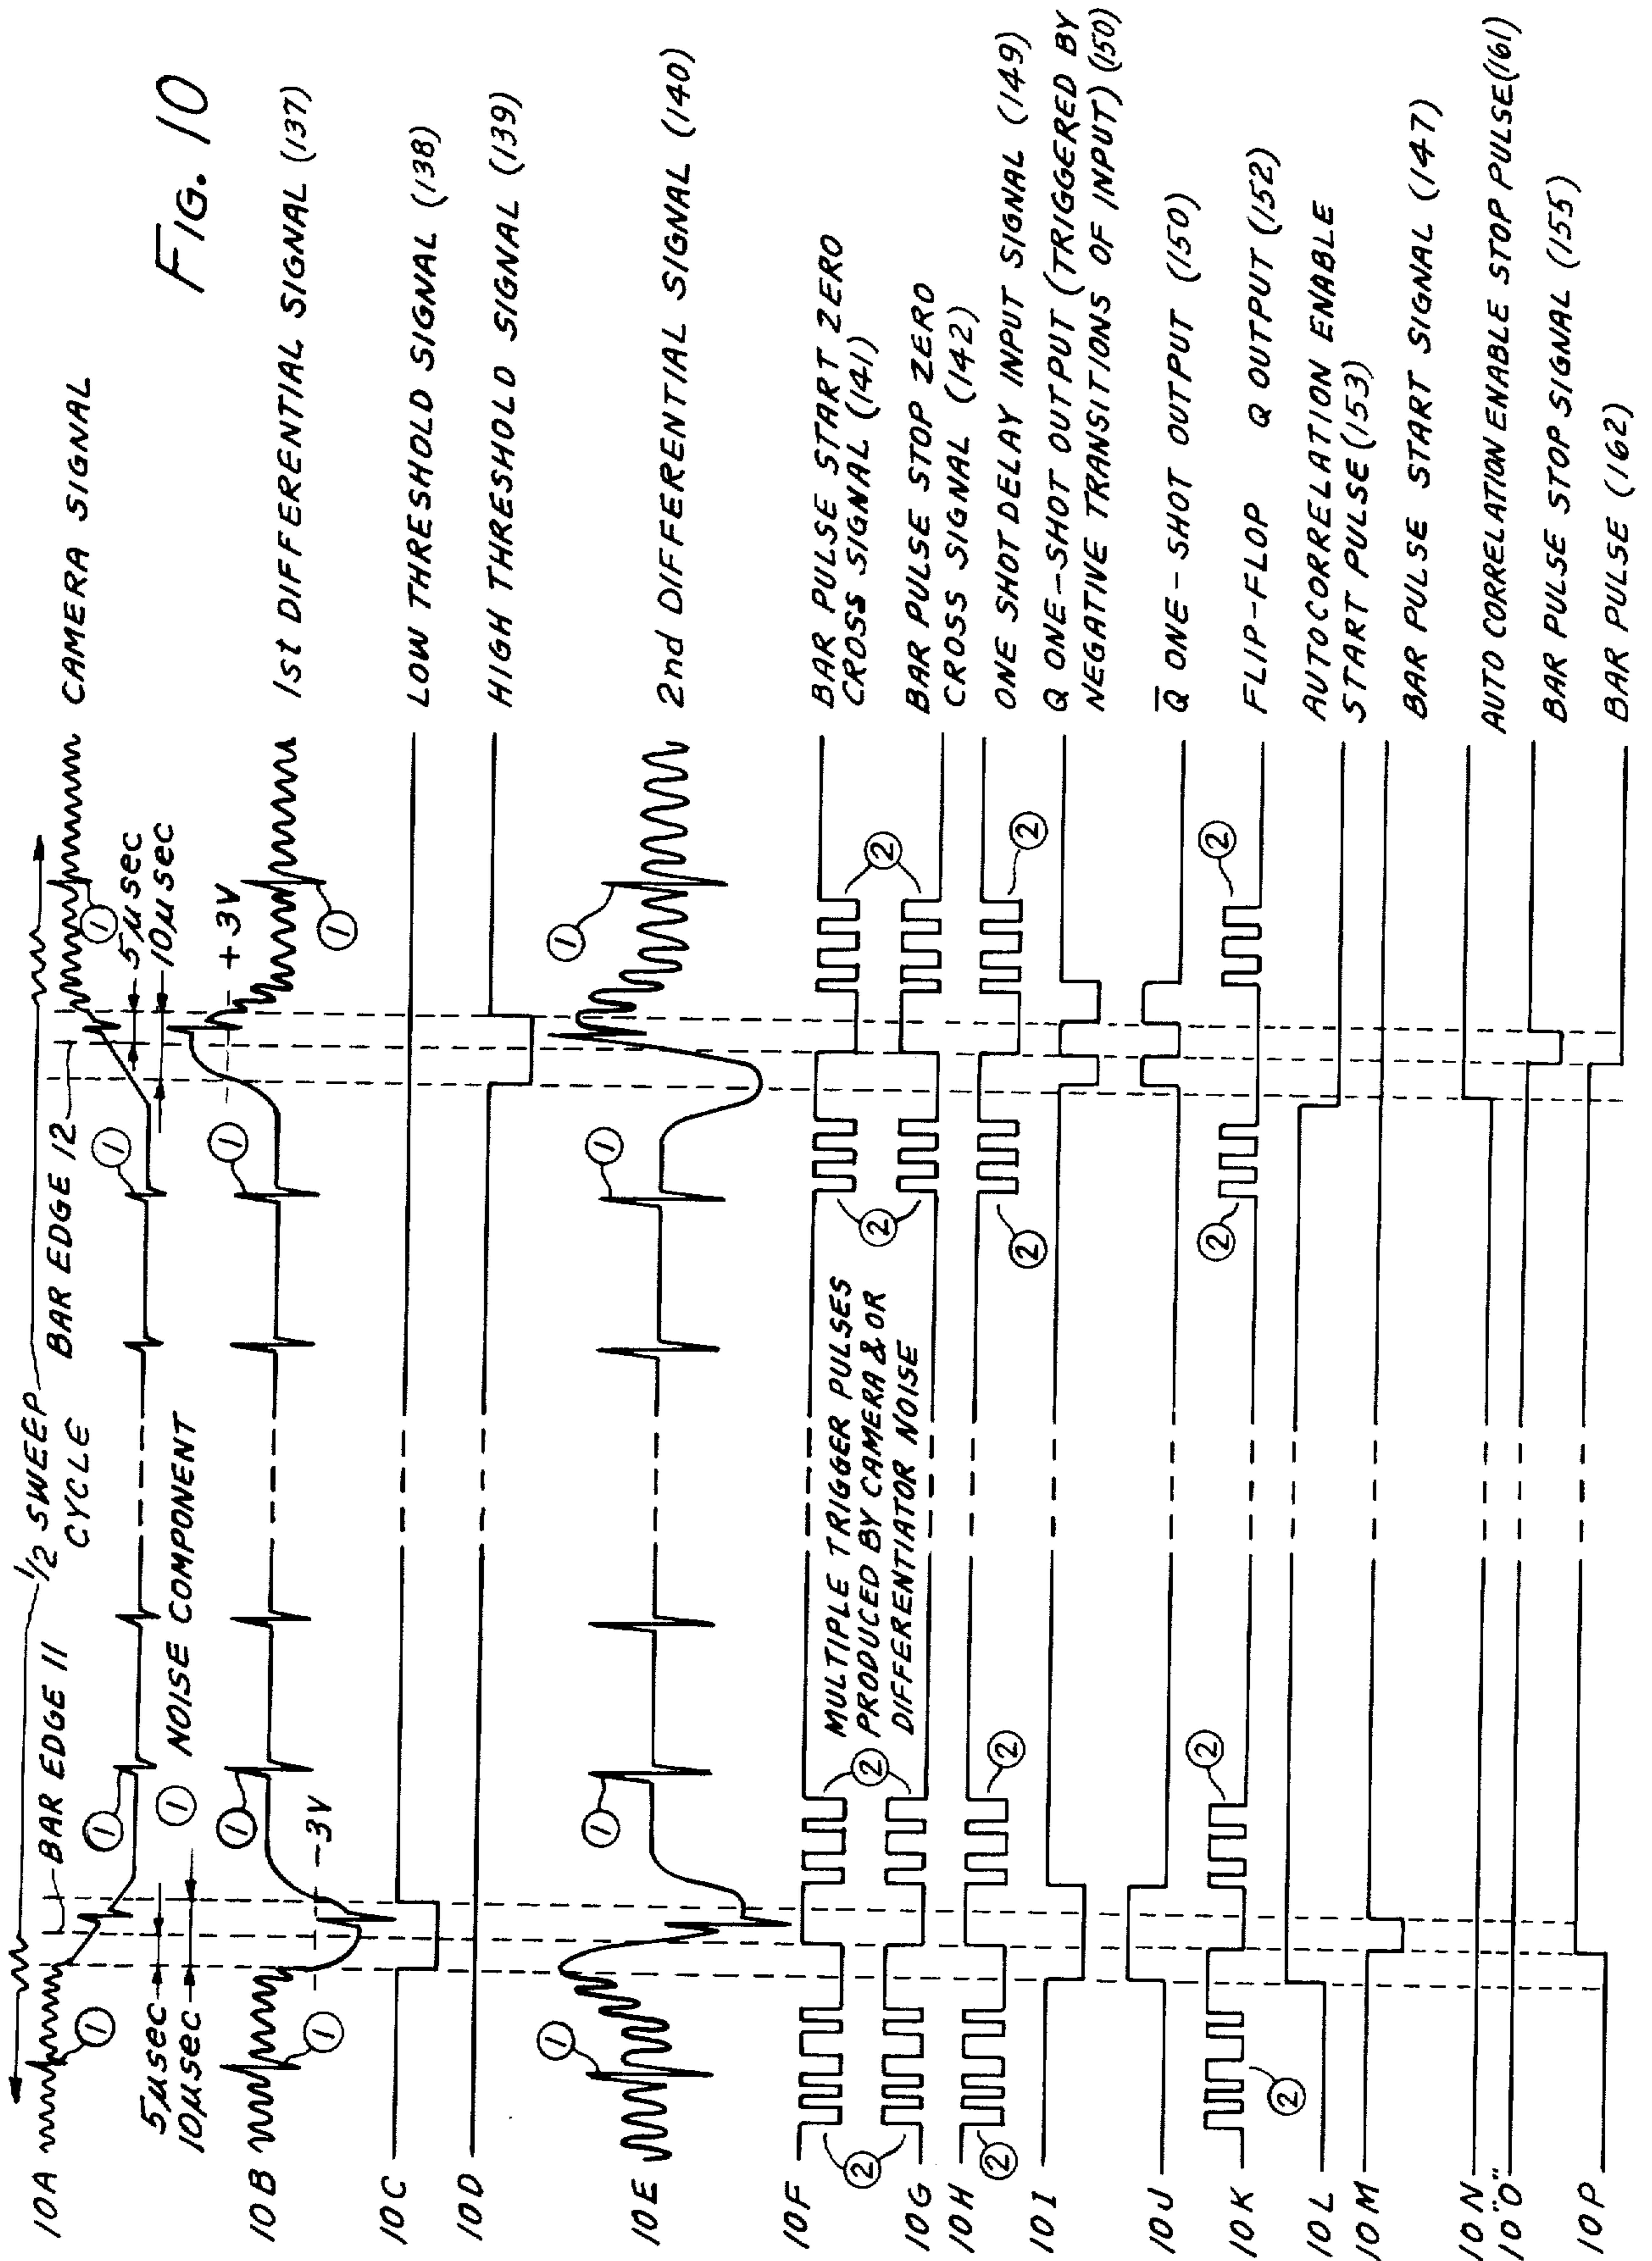 FIG. 10
1/2 SWEEP
CYCLE
BAR EDGE 11
BAR EDGE 12
10A
CAMERA SIGNAL
1
1
1
1
5µsec
10µsec
5µsec
10µsec
1 NOISE COMPONENT
+3V
10B
1st DIFFERENTIAL SIGNAL (137)
1
1
1
1
-3V
10C
LOW THRESHOLD SIGNAL (138)
10D
HIGH THRESHOLD SIGNAL (139)
10E
2nd DIFFERENTIAL SIGNAL (140)
1
1
1
1
10F
BAR PULSE START ZERO
CROSS SIGNAL (141)
2
2
2
2
MULTIPLE TRIGGER PULSES
PRODUCED BY CAMERA & OR
DIFFERENTIATOR NOISE
10G
BAR PULSE STOP ZERO
CROSS SIGNAL (142)
10H
ONE SHOT DELAY INPUT SIGNAL (149)
2
2
2
2
10I
Q ONE-SHOT OUTPUT (TRIGGERED BY
NEGATIVE TRANSITIONS OF INPUT) (150)
10J
Q̅ ONE-SHOT OUTPUT (150)
10K
FLIP-FLOP Q OUTPUT (152)
2
2
2
2
10L
AUTOCORRELATION ENABLE
START PULSE (153)
10M
BAR PULSE START SIGNAL (147)
10N
AUTO CORRELATION ENABLE STOP PULSE (161)
10"O"
BAR PULSE STOP SIGNAL (155)
10P
BAR PULSE (162)